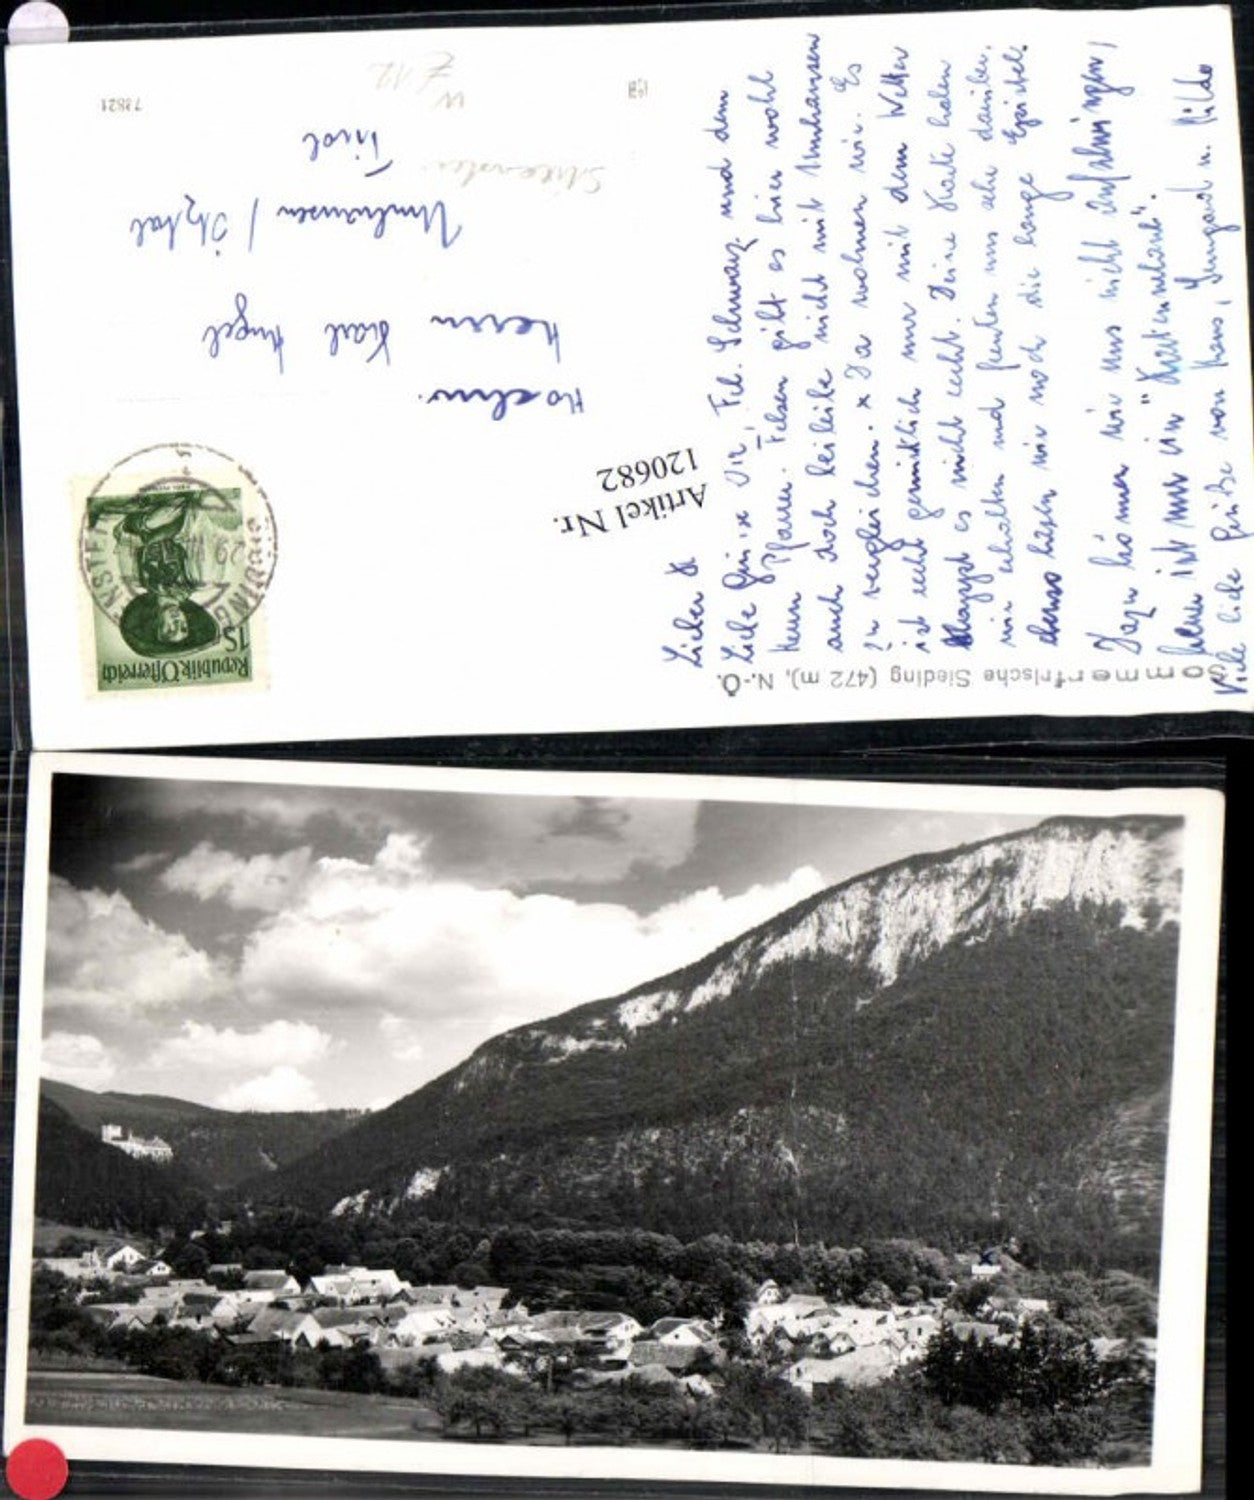 Sommerfrische Sieding (472 m), N.-Ö.
Lieber
Liebe Grüsse Dir, Frl. Schwarz und dem
Herrn Pfarrer. Felsen gibt es hier wohl
auch doch beileibe nicht mit Umhausen
zu vergleichen. x Da wohnen wir. Es
ist recht gemütlich nur mit dem Wetter
klappt es nicht recht. Deine Karte haben
wir erhalten und freuten uns sehr darüber.
ebenso lasen wir noch die lange Epistel.
Dazu können wir uns nicht aufschwingen,
ist nur ein
Viele liebe Grüße von Hans, Irmgard u. Hilde
Artikel Nr.
120682
Republik Österreich
1S
29
Hochw.
Herrn Karl Angel
Umhausen / Ötztal
Tirol
W
Z 12
73821